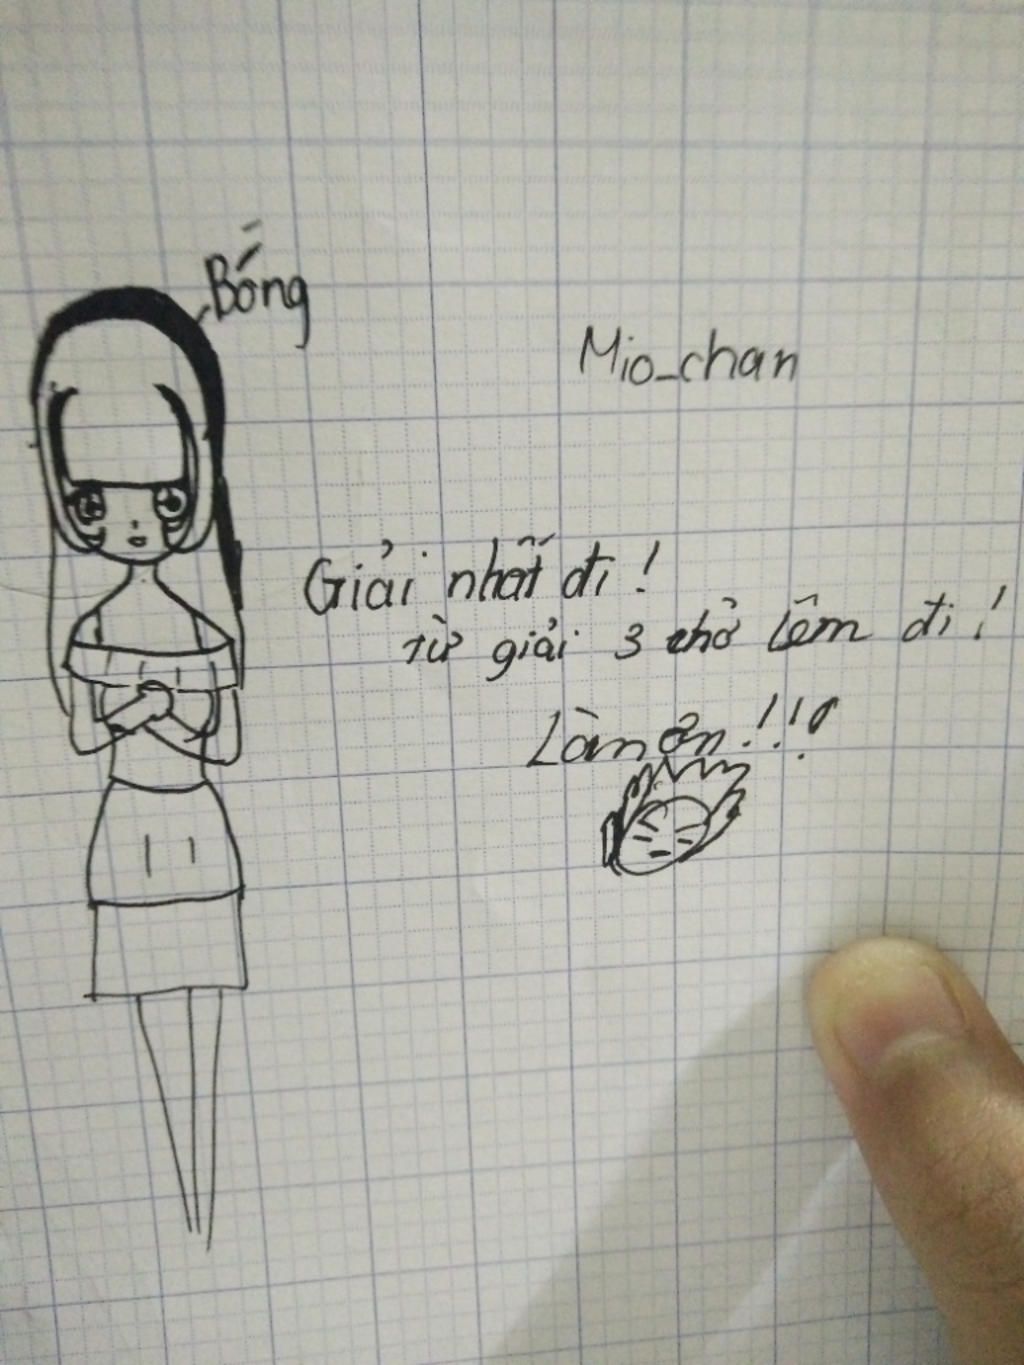 Bóng
Mio_chan
Giải nhất đi!
từ giải 3 chở lêm đi!
Làm ơn!!!